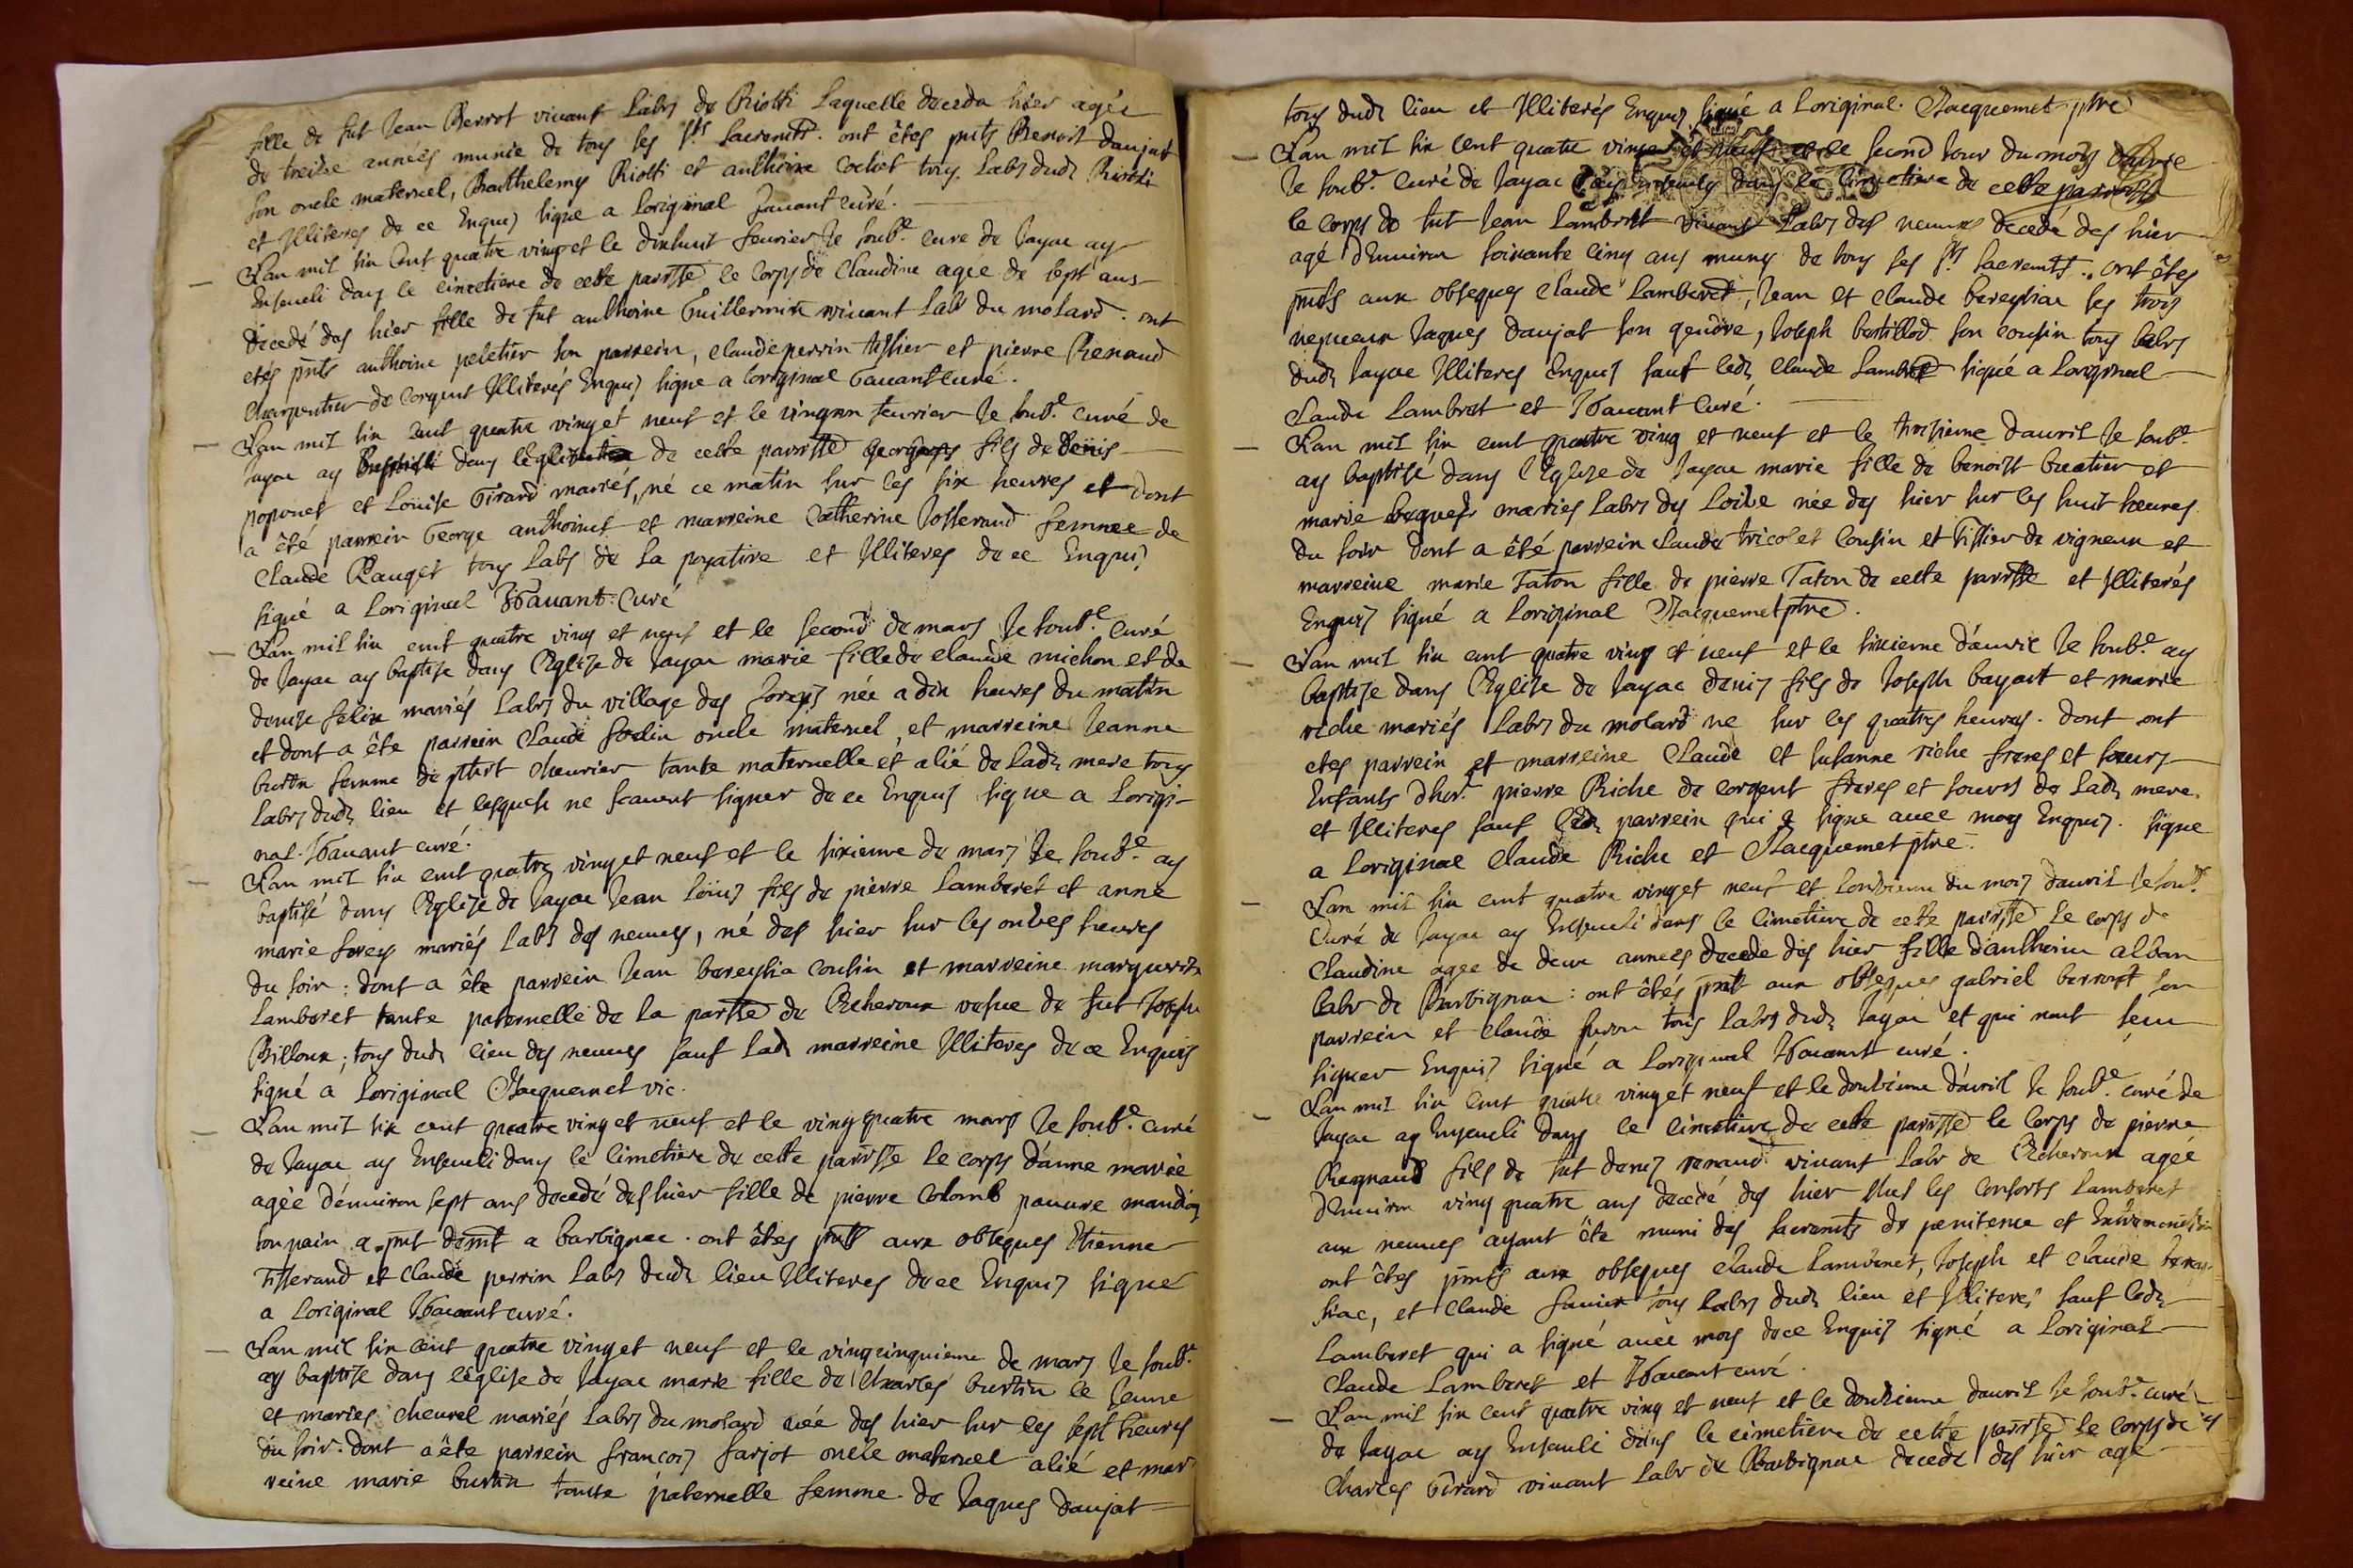 fille de fut Jean Berrot vivant Labr de Riotti Laquelle deceda hier agée
de treize années munie de tous ses Sts Sacremts. ont êtes pnts Benoist daujat
son oncle maternel, Barthelemy Riotti et anthoine cochet tous Labrs dudt Riotti
et Illiteres de ce Enquis signe a Loriginal Favant curé.
Lan mil six Cent quatre ving et le dixhuit feurier Je soubé. cure de Jayac ay
Enseveli dans le cimetiere de cette parrsse le Corps de Claudine agee de sept ans
decedé des hier fille de fut anthoine Guillermin vivant Labr du molard. ont
etés pnts anthoine peletier son parrein, claude perrin tissier et pierre Renaud
Charpentier de Corgent Illiterés Enquis signé a Loriginal Favant Curé.
Lan mil six cent quatre ving et neuf et le feurier Je soubé curé de
Jayac ay dans de cette parrsse fils de Denis
poponet et Louise Girard mariés, né ce matin sur les six heures et dont
a été parrein George anthoinet et marreine Catherine Josserand femme de
Claude Rauget tous Labs de La poyatire et Illiteres de ce Enquis
signé a Loriginal Favant Curé
Lan mil six cent quatre ving et neuf et le second de mars Je soubé curé
de Jayac ay baptise dans LEglise de Jayac marie fille de claude michon et de
denise felix mariés Labrs du village des née a dix heures du matin
et dont a ête parrein Claude oncle maternel, et marreine Jeanne
burtin femme de cheurier tante maternelle et alié de Ladt mere tous
Labrs dudt lieu et lesquels ne scavent signer de ce Enquis signe a Lorigi-
nal. Favant curé.
Lan mil six cent quatre ving et neuf et le sixieme de mars Je soubé ay
baptisé dans LEglise de Jayac Jean Loüis fils de pierre Lamberet et anne
marie forey mariés Labs des neuues, né des hier sur les onzes heures
du soir: dont a êté parrein Jean bereyzia cousin et marreine marguerite
Lamberet tante paternelle de La parsse de vefue de fut Joseph
Billoux; tous dudt lieu des neuues sauf Ladt marreine Illiteres de ce Enquis
signé a Loriginal Jacquemet vic.
Lan mil six cent quatre ving et neuf et le ving quatre mars Je soubé. curé
de Jayac ay Enseveli dans le cimetiere de cette parrsse Le corps d'anne mariée
agée d'environ sept ans decedé des hier fille de pierre Colomb pauure mandiant
son pain a pnt demt a barbignac. ont êtes pnts aux obseques Etienne
Tisserand et Claude perrin Labs dudt lieu Illiteres de ce Enquis signé
a Loriginal Favant curé.
Lan mil six cent quatre ving et neuf et le vingcinquieme de mars Je soubé.
ay baptise dans léglise de Jayac marie fille de Charles burtin le Jeune
et maries cheurel mariés Labrs du molard née des hier sur les sept heures
du soir. dont a êté parrein francois farjot oncle maternel alié et mar
reine marie burtin tante paternelle femme de Jaques daujat
tous dudt lieu et Illiterés Enquis, signé a Loriginal. Jacquemet ptre
Lan mil six Cent quatre ving et neuf et le second Jour du mois
Je soubé. Curé de Jayac ay dans le cimetiere de cette parrsse
le corps de fut Jean Lamberet vivant Labrs des neuues decedé des hier
agé d'Environ soixante cinq ans muny de tous ses Sts sacremts. ont êtes
pnts aux obseques Claude Lamberet, Jean et claude bereyziac ses trois
nepueux Jaques daujat son gendre, Joseph bertillod son cousin tous labrs
dudt Jayac Illiteres Enquis sauf ledt Claude Lambret signé a Loriginal
Claude Lambret et Favant Curé.
Lan mil six cent quatre ving et neuf et le troisieme dauril Je soubé.
ay baptisé dans l'Eglise de Jayac marie fille de benoist et
marie mariés Labrs des née des hier sur les huit heures
du soir dont a êté parrein Claude tricolet Cousin et tissier de vigneux et
marreine marie Taton fille de pierre Taton de cette parrsse et Illiterés
Enquis signé a Loriginal Jacquemet ptre.
Lan mil six cent quatre ving et neuf et le sixieme d'auril Je soubé ay
baptise dans LEglise de Jayac denis fils de Joseph bayart et marie
riche mariés Labrs du molard né sur les quatres heures. dont ont
etes parrein et marreine Claude et susanne riche freres et soeurs
Enfants d'hor. pierre Riche de corgent freres et soeurs de Ladt mere.
et Illiteres sauf Ledt parrein qui a signe auec moy Enquis. signe
a Loriginal Claude Riche et Jacquemet ptre.
Lan mil six cent quatre ving et neuf et Lonzieme du mois dauril Je soubé
Curé de Jayac ay Enseveli dans le cimetiere de cette parrsse Le corps de
Claudine agee de deux années decede des hier fille d'anthoine alban
labr de Barbignac: ont êtés pnts aux obseques gabriel son
parrein et claude tous Labrs dudt Jayac et qui nont sceu
signer Enquis signé a Loriginal Favant curé.
Lan mil six cent quatre ving et neuf et le douzieme d'auril Je soubé. curé de
Jayac ay Enseveli dans le cimetiere de cette parrsse le Corps de pierre
Regnaud fils de fut denis renaud vivant Labr de agée
d'Environ ving quatre ans decedé des hier les Consorts Lamberet
aux neuues ayant ête muni des sacremts de penitence et
ont êtes pnts aux obseques Claude Lamberet, Joseph et claude berey-
ziac, et Claude tous Labrs dudt lieu et Illiteres sauf ledt
Lamberet qui a signé auec moy de ce Enquis signé a Loriginal
Claude Lamberet et Favant curé.
Lan mil six cent quatre ving et neuf et le douzieme dauril Je soubé. curé
de Jayac ay Enseveli dans le cimetiere de cette parrsse Le corps de
Charles Girard vivant Labr de Barbignac decede des hier agé